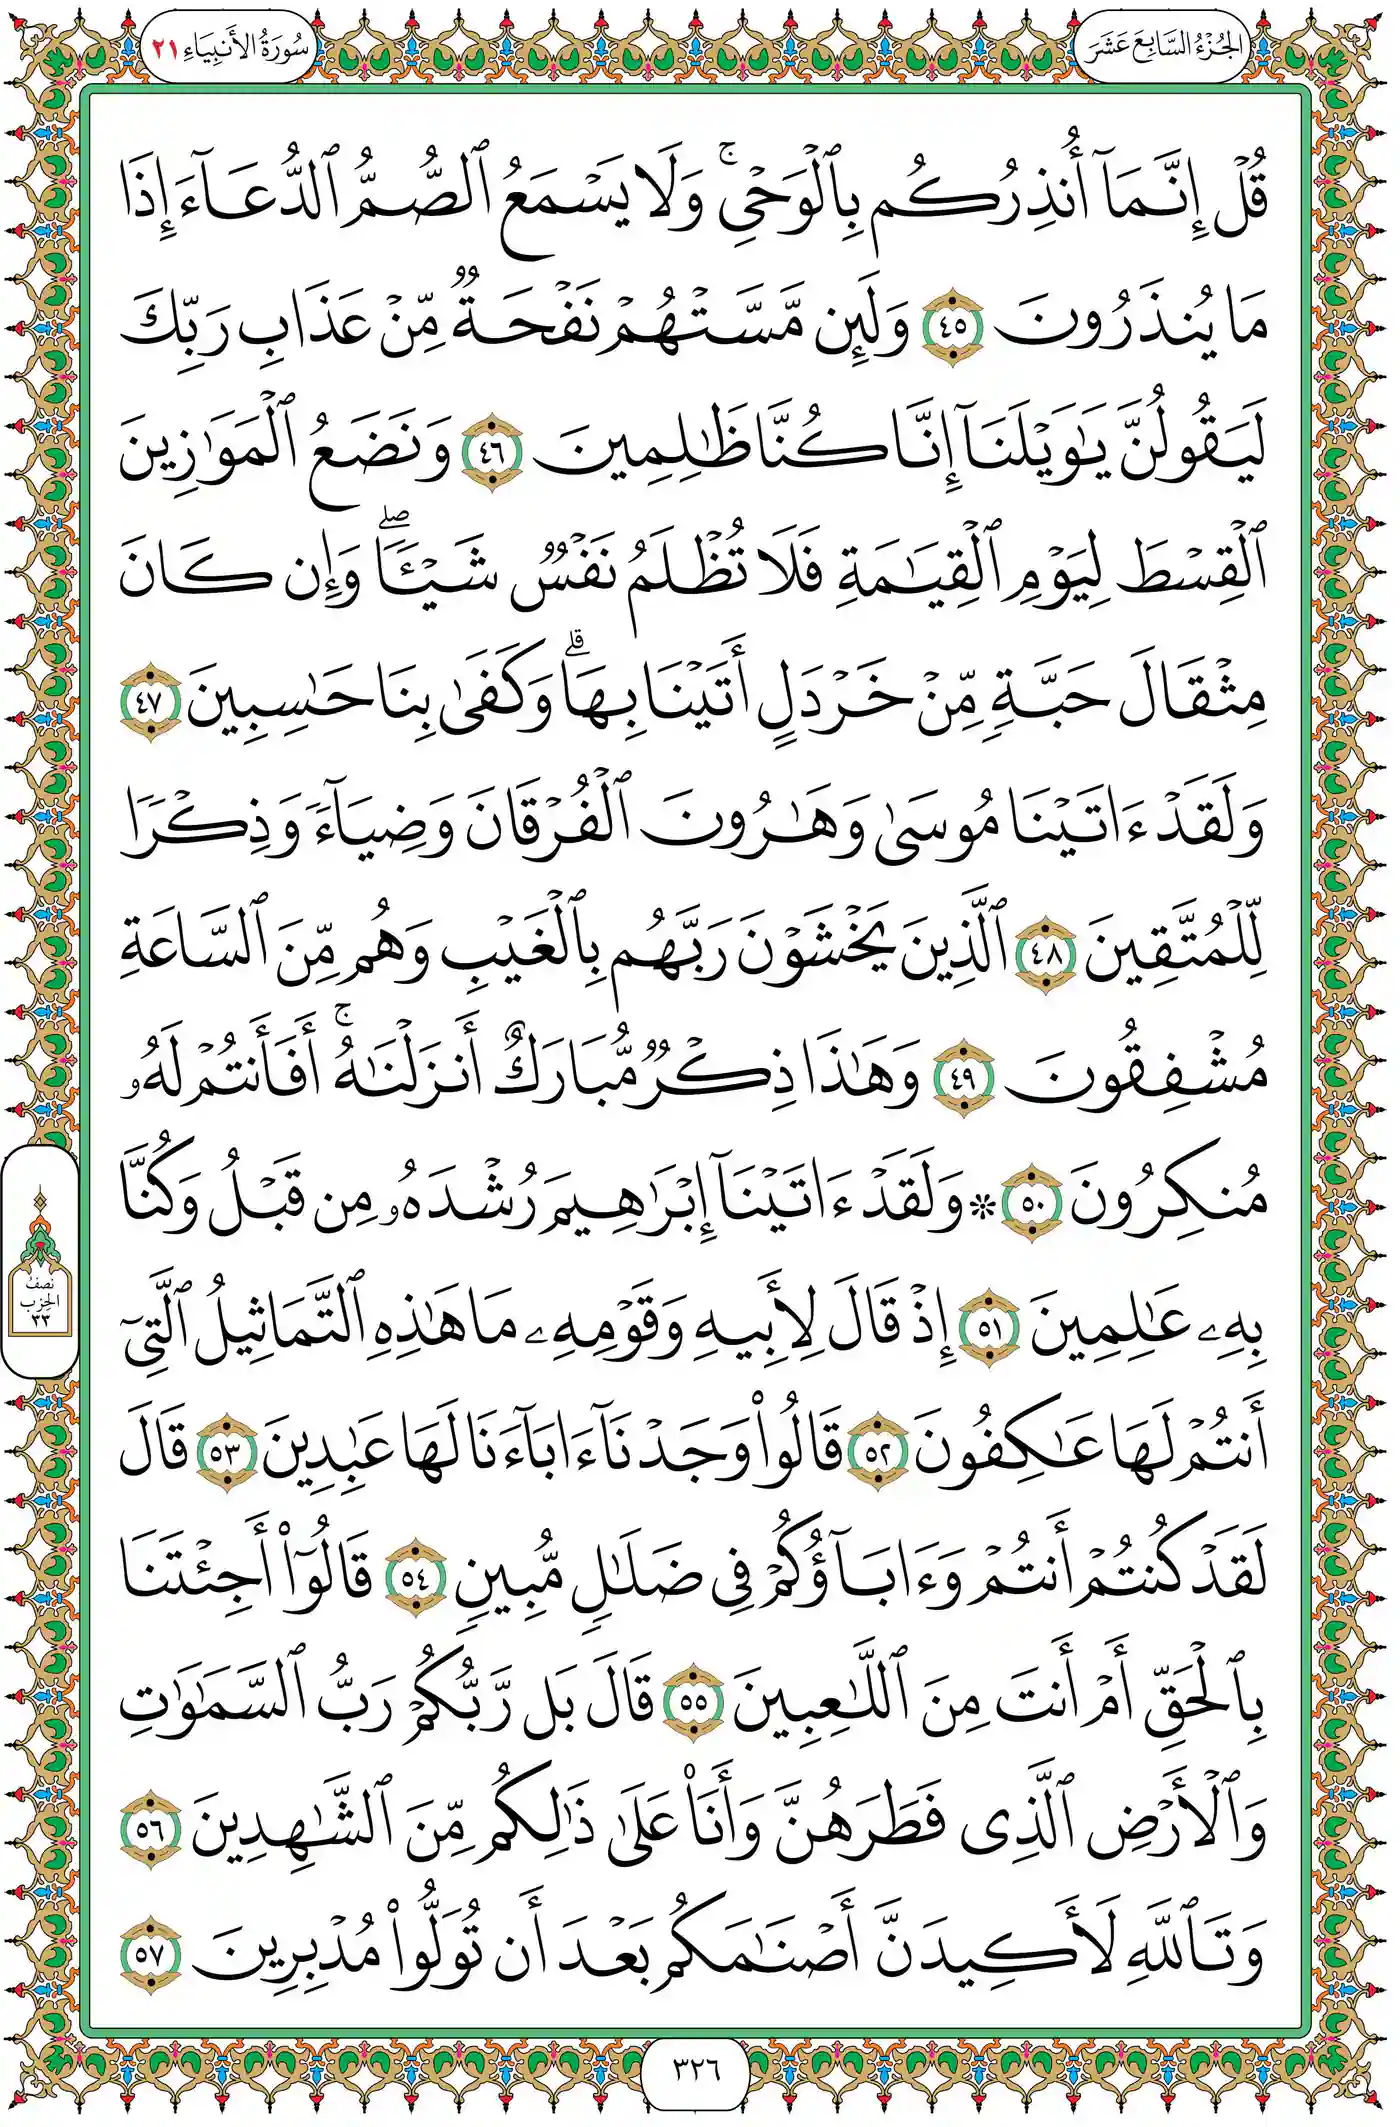 الجُزْءُ السَّابِعَ عَشَرَ
سُورَةُ الأَنبِيَاءِ ٢١
قُلْ إِنَّمَآ أُنذِرُكُم بِٱلْوَحْىِ ۚ وَلَا يَسْمَعُ ٱلصُّمُّ ٱلدُّعَآءَ إِذَا
مَا يُنذَرُونَ ٤٥ وَلَئِن مَّسَّتْهُمْ نَفْحَةٌ مِّنْ عَذَابِ رَبِّكَ
لَيَقُولُنَّ يَٰوَيْلَنَآ إِنَّا كُنَّا ظَٰلِمِينَ ٤٦ وَنَضَعُ ٱلْمَوَٰزِينَ
ٱلْقِسْطَ لِيَوْمِ ٱلْقِيَٰمَةِ فَلَا تُظْلَمُ نَفْسٌ شَيْـًٔا ۖ وَإِن كَانَ
مِثْقَالَ حَبَّةٍ مِّنْ خَرْدَلٍ أَتَيْنَا بِهَا ۗ وَكَفَىٰ بِنَا حَٰسِبِينَ ٤٧
وَلَقَدْ ءَاتَيْنَا مُوسَىٰ وَهَٰرُونَ ٱلْفُرْقَانَ وَضِيَآءً وَذِكْرًا
لِّلْمُتَّقِينَ ٤٨ ٱلَّذِينَ يَخْشَوْنَ رَبَّهُم بِٱلْغَيْبِ وَهُم مِّنَ ٱلسَّاعَةِ
مُشْفِقُونَ ٤٩ وَهَٰذَا ذِكْرٌ مُّبَارَكٌ أَنزَلْنَٰهُ ۚ أَفَأَنتُمْ لَهُۥ
مُنكِرُونَ ٥٠ ۞ وَلَقَدْ ءَاتَيْنَآ إِبْرَٰهِيمَ رُشْدَهُۥ مِن قَبْلُ وَكُنَّا
بِهِۦ عَٰلِمِينَ ٥١ إِذْ قَالَ لِأَبِيهِ وَقَوْمِهِۦ مَا هَٰذِهِ ٱلتَّمَاثِيلُ ٱلَّتِىٓ
أَنتُمْ لَهَا عَٰكِفُونَ ٥٢ قَالُوا۟ وَجَدْنَآ ءَابَآءَنَا لَهَا عَٰبِدِينَ ٥٣ قَالَ
لَقَدْ كُنتُمْ أَنتُمْ وَءَابَآؤُكُمْ فِى ضَلَٰلٍ مُّبِينٍ ٥٤ قَالُوٓا۟ أَجِئْتَنَا
بِٱلْحَقِّ أَمْ أَنتَ مِنَ ٱللَّٰعِبِينَ ٥٥ قَالَ بَل رَّبُّكُمْ رَبُّ ٱلسَّمَٰوَٰتِ
وَٱلْأَرْضِ ٱلَّذِى فَطَرَهُنَّ وَأَنَا۠ عَلَىٰ ذَٰلِكُم مِّنَ ٱلشَّٰهِدِينَ ٥٦
وَتَٱللَّهِ لَأَكِيدَنَّ أَصْنَٰمَكُم بَعْدَ أَن تُوَلُّوا۟ مُدْبِرِينَ ٥٧
نصف
الحزب
٣٣
٣٢٦